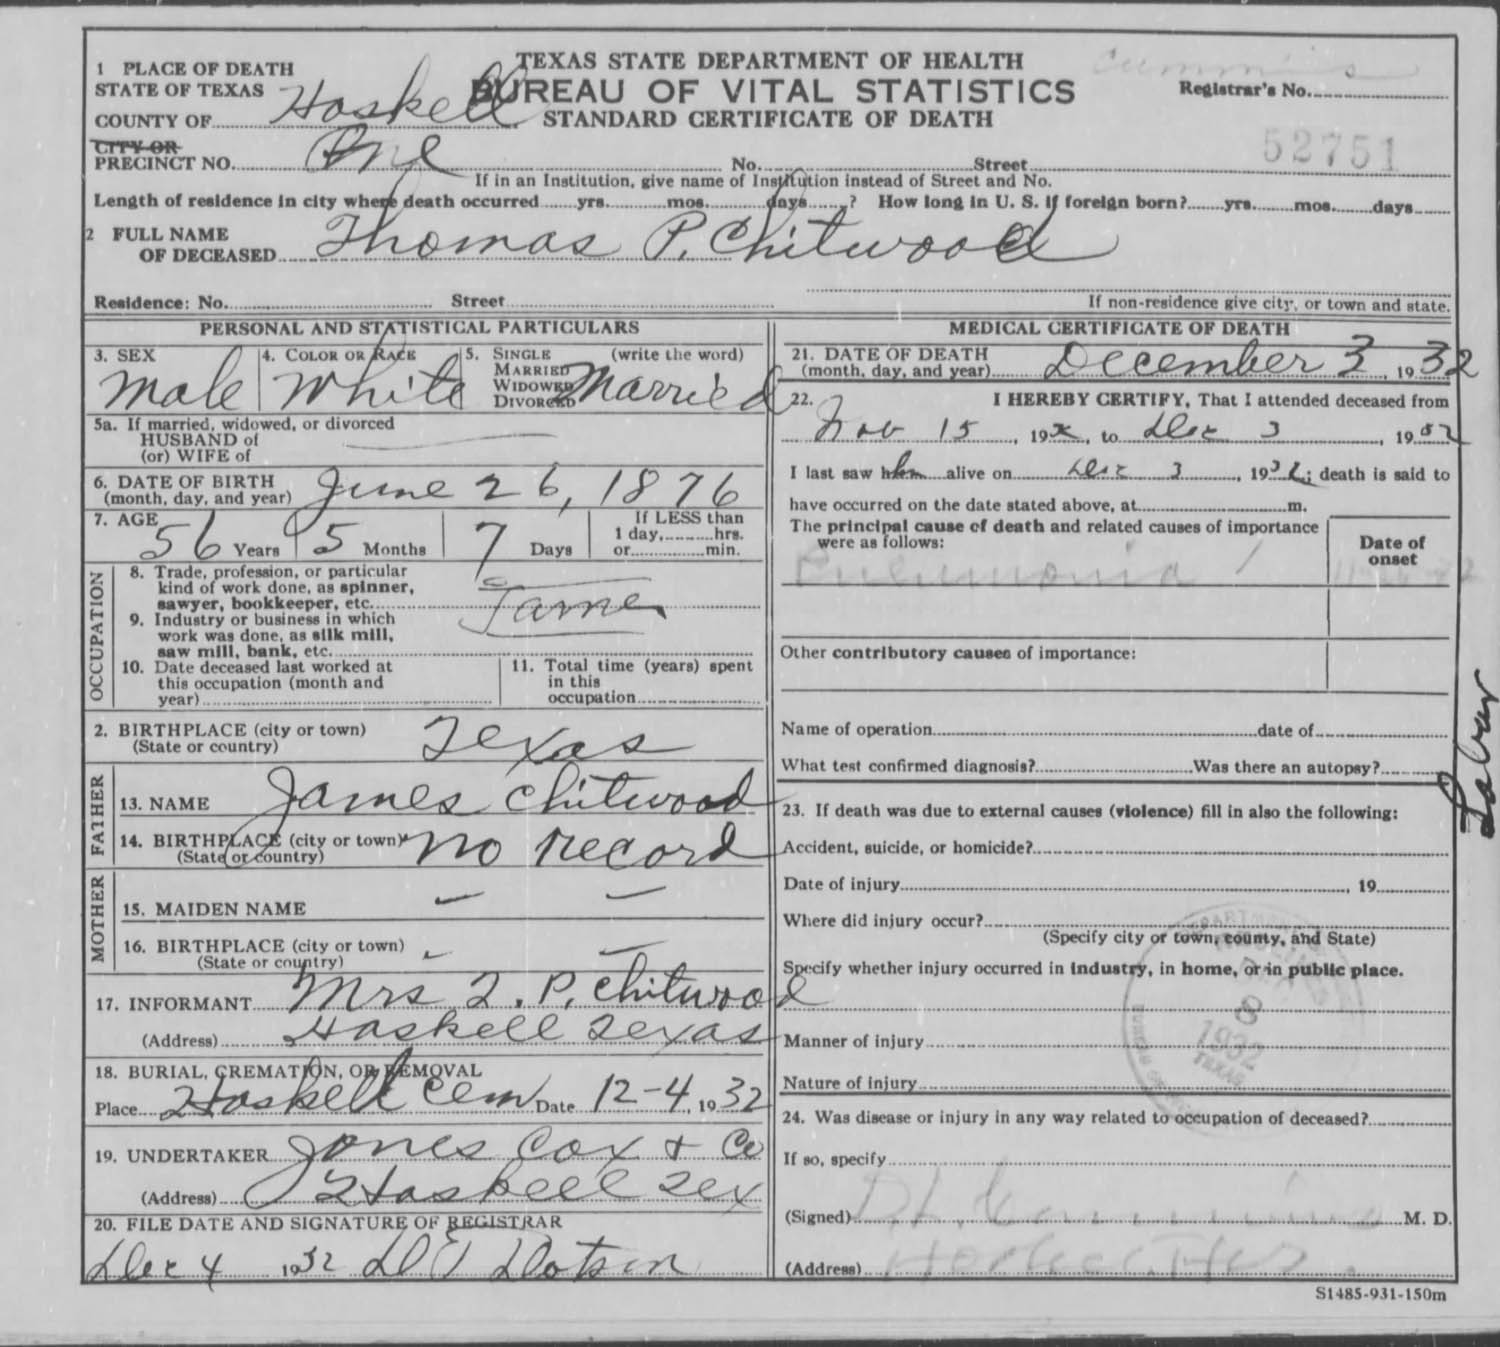 TEXAS STATE DEPARTMENT OF HEALTH
BUREAU OF VITAL STATISTICS
STANDARD CERTIFICATE OF DEATH
Cummins
Registrar's No.
52751
1 PLACE OF DEATH
STATE OF TEXAS
COUNTY OF Haskell
CITY OR
PRECINCT NO. One No. Street
If in an Institution, give name of Institution instead of Street and No.
Length of residence in city where death occurred yrs. mos. days ? How long in U. S. if foreign born? yrs. mos. days
2 FULL NAME
OF DECEASED Thomas P. Chitwood
Residence: No. Street
If non-residence give city, or town and state.
PERSONAL AND STATISTICAL PARTICULARS
3. SEX Male
4. COLOR OR RACE White
5. SINGLE (write the word)
MARRIED
WIDOWED
DIVORCED Married
5a. If married, widowed, or divorced
HUSBAND of
(or) WIFE of
6. DATE OF BIRTH
(month, day, and year) June 26, 1876
7. AGE 56 Years 5 Months 7 Days
If LESS than
1 day, hrs.
or min.
OCCUPATION
8. Trade, profession, or particular
kind of work done, as spinner,
sawyer, bookkeeper, etc.
9. Industry or business in which
work was done, as silk mill,
saw mill, bank, etc.
10. Date deceased last worked at
this occupation (month and
year)
11. Total time (years) spent
in this
occupation
2. BIRTHPLACE (city or town)
(State or country) Texas
FATHER
13. NAME James Chitwood
14. BIRTHPLACE (city or town)
(State or country) No record
MOTHER
15. MAIDEN NAME — —
16. BIRTHPLACE (city or town)
(State or country) — —
17. INFORMANT Mrs T. P. Chitwood
(Address) Haskell Texas
18. BURIAL, CREMATION, OR REMOVAL
Place Haskell Cem Date 12-4, 1932
19. UNDERTAKER Jones Cox & Co
(Address) Haskell Tex
20. FILE DATE AND SIGNATURE OF REGISTRAR
Dec 4 1932 Dotson
MEDICAL CERTIFICATE OF DEATH
21. DATE OF DEATH
(month, day, and year) December 3, 1932
22. I HEREBY CERTIFY, That I attended deceased from
Nov 15, 19 , to Dec 3, 1932
I last saw him alive on Dec 3, 1932; death is said to
have occurred on the date stated above, at m.
The principal cause of death and related causes of importance
were as follows:
Date of
onset
Pneumonia
Other contributory causes of importance:
Name of operation date of
What test confirmed diagnosis? Was there an autopsy?
23. If death was due to external causes (violence) fill in also the following:
Accident, suicide, or homicide?
Date of injury , 19
Where did injury occur?
(Specify city or town, county, and State)
Specify whether injury occurred in industry, in home, or in public place.
Manner of injury
Nature of injury
8
1932
TEXAS
24. Was disease or injury in any way related to occupation of deceased?
If so, specify
(Signed) Cummins M. D.
(Address)
S1485-931-150m